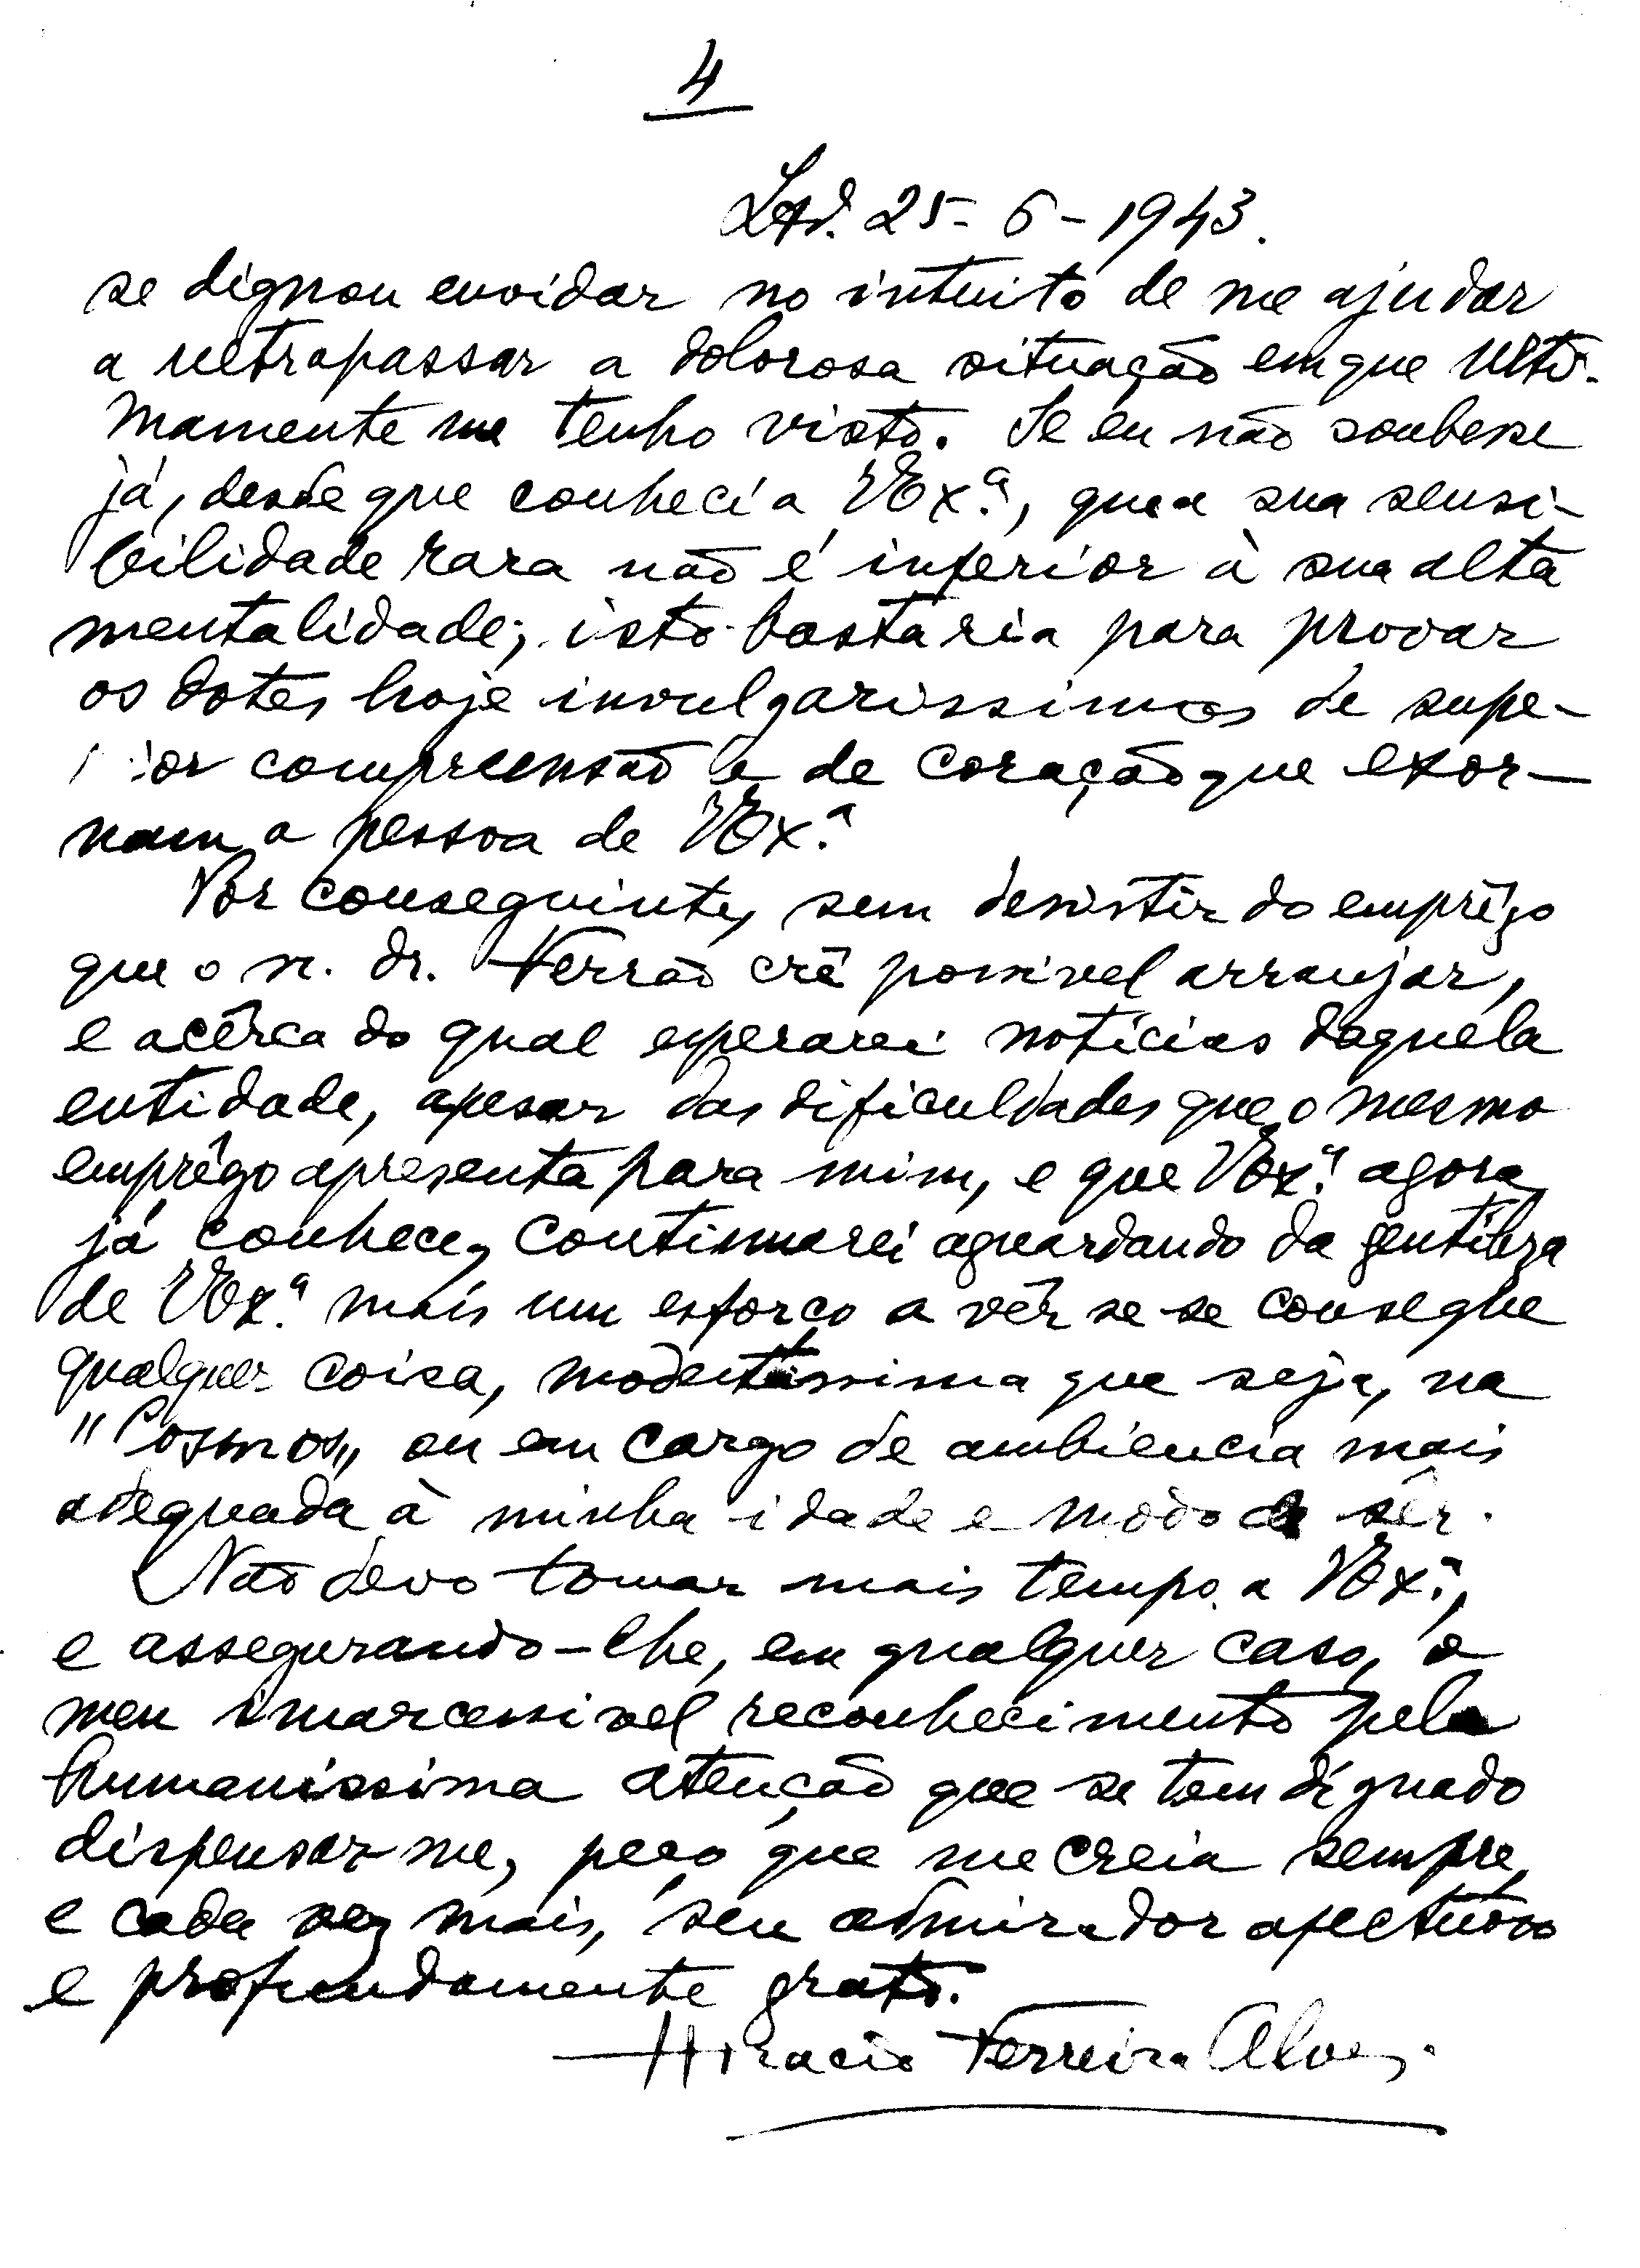 4
25-6-1943.
se dignou envidar no intuito de me ajudar
a ultrapassar a dolorosa situação em que ulti-
mamente me tenho visto. Se eu não soubesse
já, desde que conheci a VExª., que a sua sensi-
bilidade rara não é inferior à sua alta
mentalidade; isto bastaria para provar
os dotes hoje invulgaríssimos de supe-
rior compreensão e de coração que exor-
nam a pessoa de VExª.
Por conseguinte, sem desistir do emprêgo
que o sr. dr. Ferrão crê possivel arranjar,
e acêrca do qual esperarei notícias daquela
entidade, apesar das dificuldades que o mesmo
emprêgo apresenta para mim, e que VExª. agora
já conhece, continuarei aguardando da gentileza
de VExª. mais um esforço a vêr se se consegue
qualquer coisa, modestíssima que seja, na
"Cosmos", ou em cargo de ambiencia mais
adequada à minha idade e modo de sêr.
Não devo tomar mais tempo a VExª.,
e assegurando-lhe, em qualquer caso, o
meu imarcessivel reconhecimento pela
humanissima atenção que se tem dignado
dispensar-me, peço que me creia sempre,
e cada vez mais, seu admirador afectuoso
e profundamente grato.
Horacio Ferreira Alves.